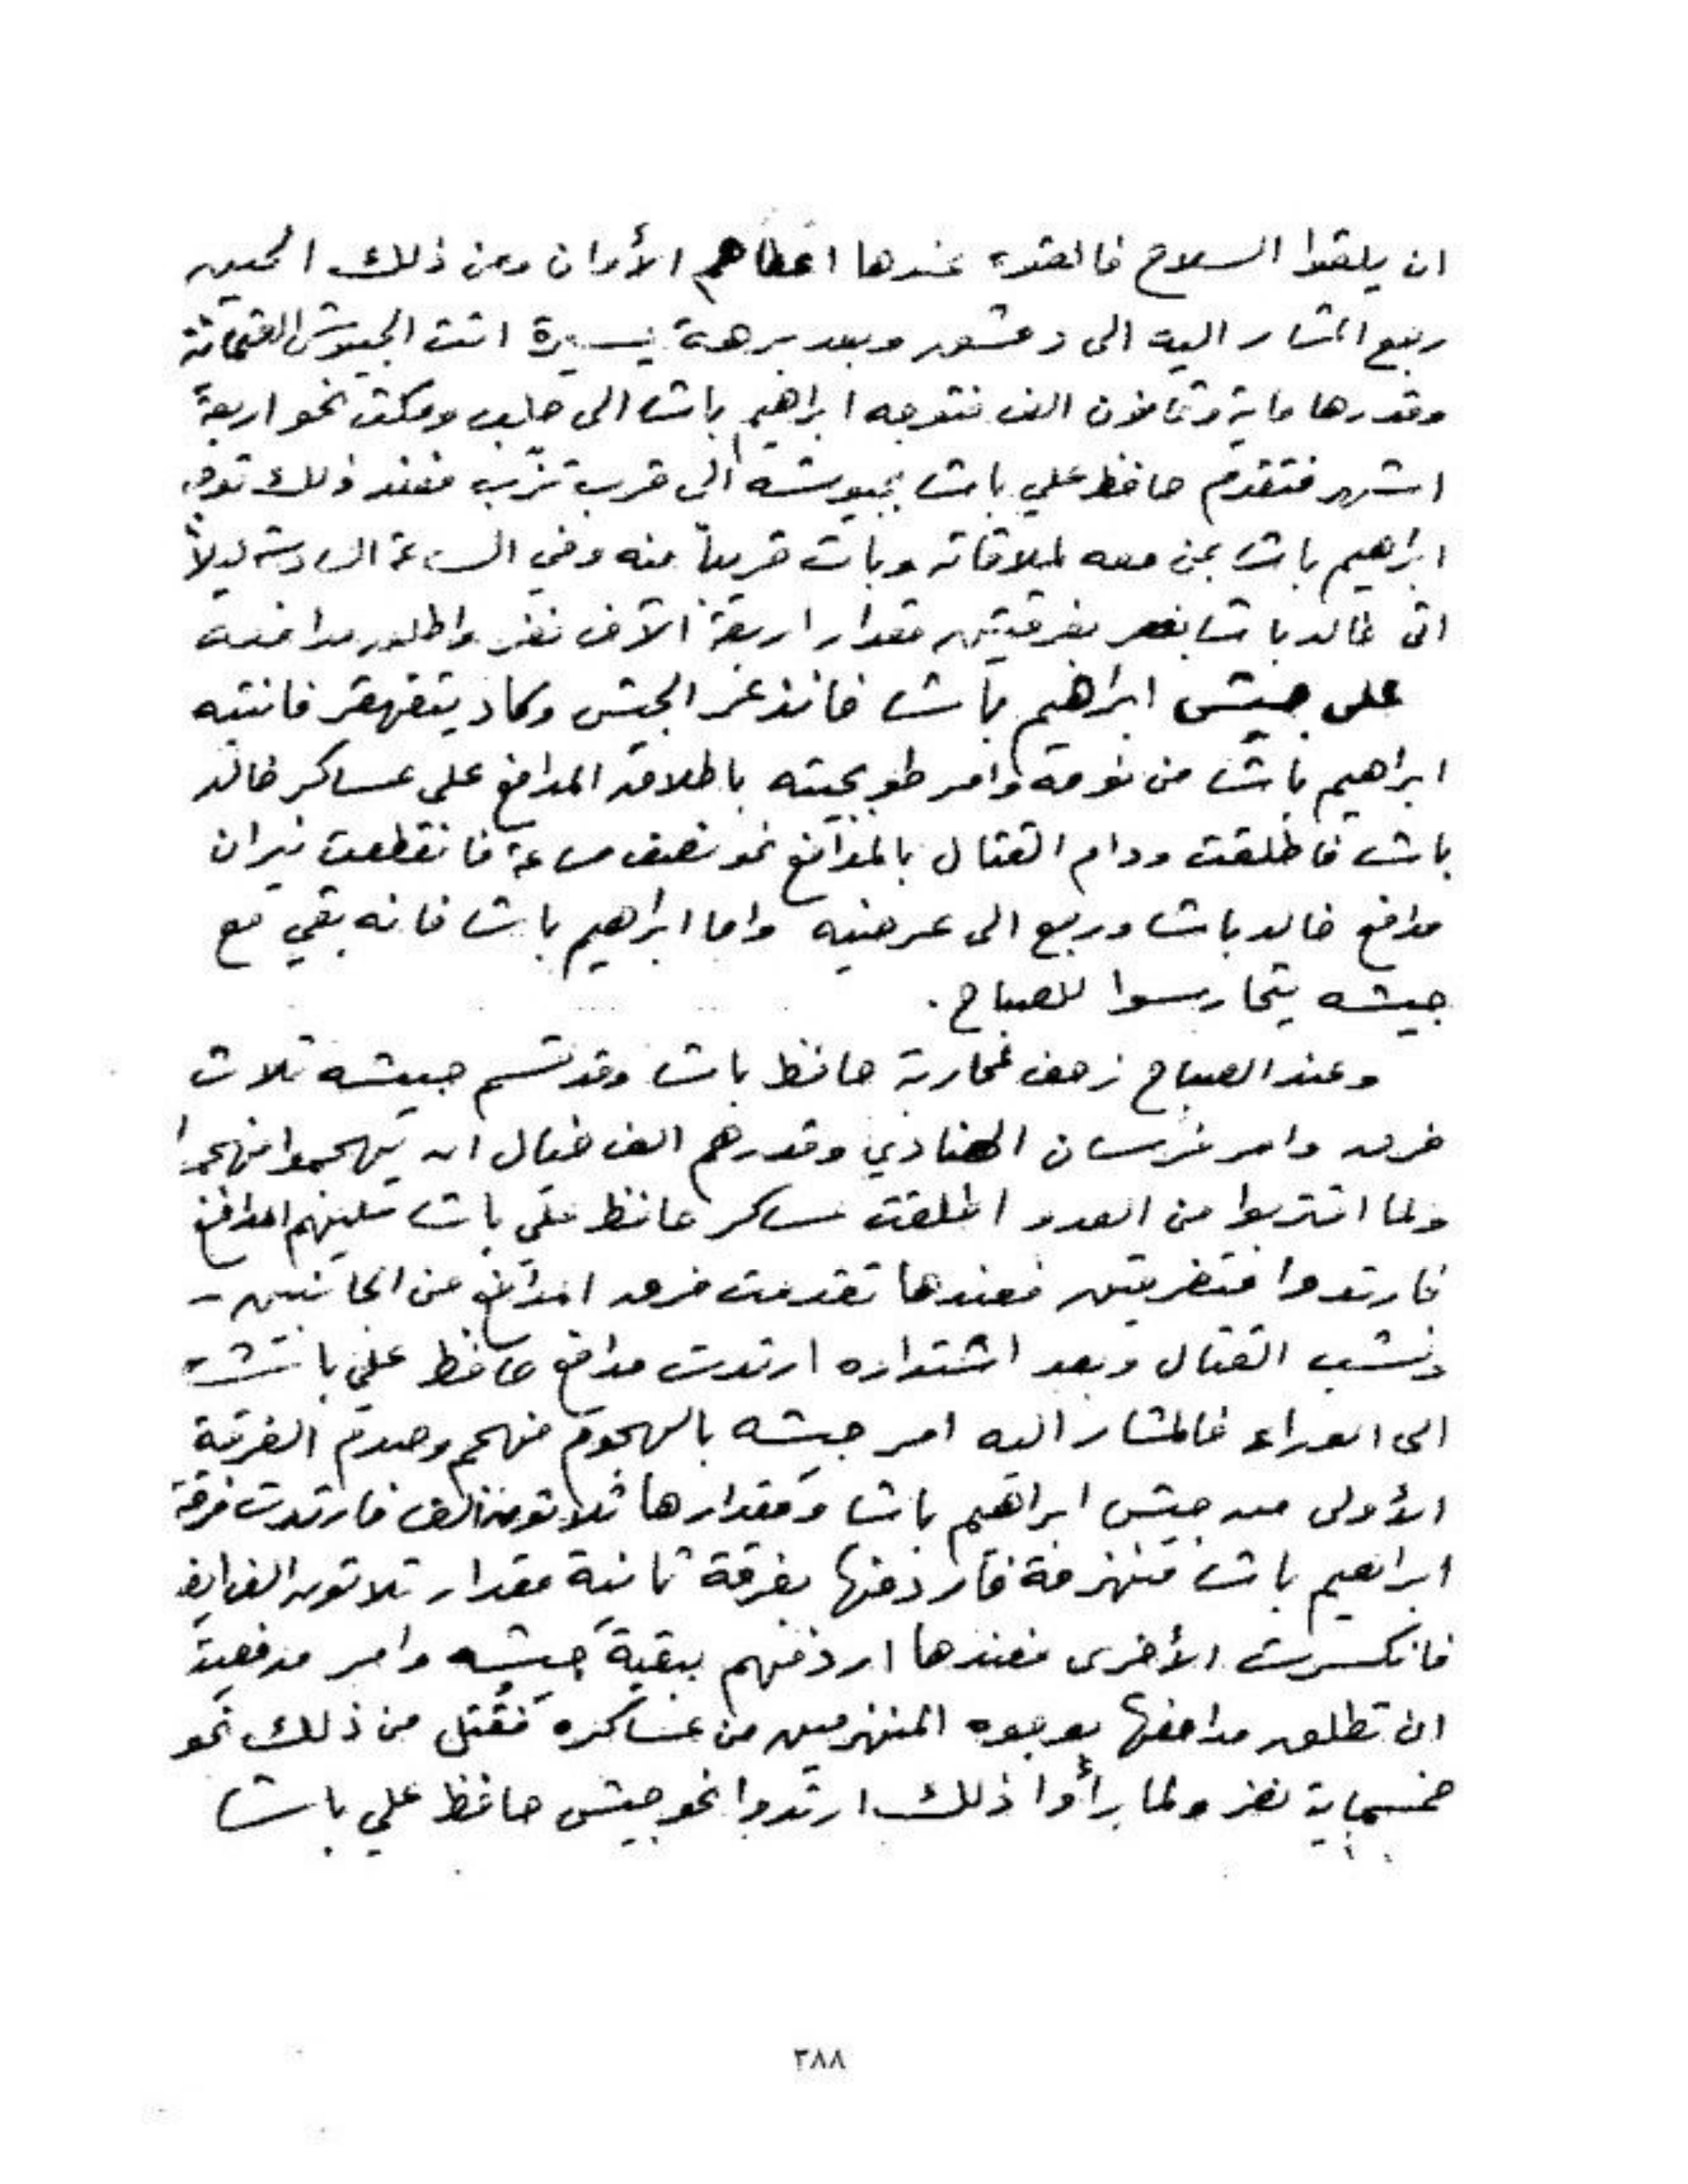 ان يلقوا السلاح فالقوه عندها اعطاهم الأمان ومن ذلك الحين
رجع المشار اليه الى دمشق وبعد برهة يسيرة اتت الجيوش العثمانية
وقدرها ماية وثمانون الف فتوجه ابراهيم باشا الى حلب ومكث نحو اربعة
اشهر فتقدم حافظ علي باشا بجيوشه الى قرب نزب فعند ذلك توجه
ابراهيم باشا بمن معه لملاقاته وبات قريباً منه وفي الساعة السادسة ليلاً
اتى خالد باشا بفرقتين مقدار اربعة آلاف نفر واطلق مدافعه
على جيش ابراهيم باشا فانذعر الجيش وكاد يتقهقر فانتبه
ابراهيم باشا من نومه وامر طوبجيته باطلاق المدافع على عساكر خالد
باشا فاطلقت ودام القتال بالمدافع نحو نصف ساعة فانقطعت نيران
مدافع خالد باشا ورجع الى عرضيه واما ابراهيم باشا فانه بقي مع
جيشه يتحارسوا للصباح .
وعند الصباح زحف لمحاربة حافظ باشا وقد قسم جيشه ثلاث
فرق وامر فرسان الهنادي وقدرهم الف خيال ان يهجموا فهجموا
ولما اقتربوا من العدو اطلقت عساكر حافظ علي باشا عليهم المدافع
فارتدوا متفرقين فعندها تقدمت فرق المدافع من الجانبين -
ونشب القتال وبعد اشتداده ارتدت مدافع حافظ علي باشا
الى الوراء فالمشار اليه امر جيشه بالهجوم فهجم وصدم الفرقة
الأولى من جيش ابراهيم باشا ومقدارها ثلاثون الف فارتدت فرقة
ابراهيم باشا منهزمة فاردفها بفرقة ثانية مقدار ثلاثون الف ايضا
فانكسرت الأخرى فعندها اردفهم ببقية جيشه وامر مدفعيته
ان تطلق مدافعها بوجوه المنهزمين من عساكره فقتل من ذلك نحو
خمسماية نفر ولما رأوا ذلك ارتدوا نحو جيش حافظ علي باشا
٣٨٨